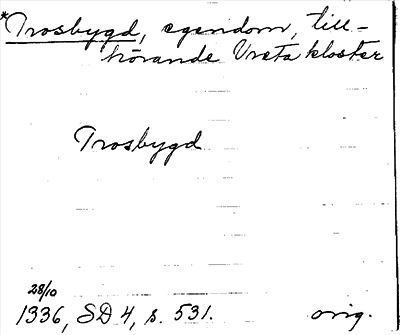 *Trosbygd, egendom, till-
hörande Vreta kloster
Trosbygd
28/10
1336, SD 4, s. 531. orig.